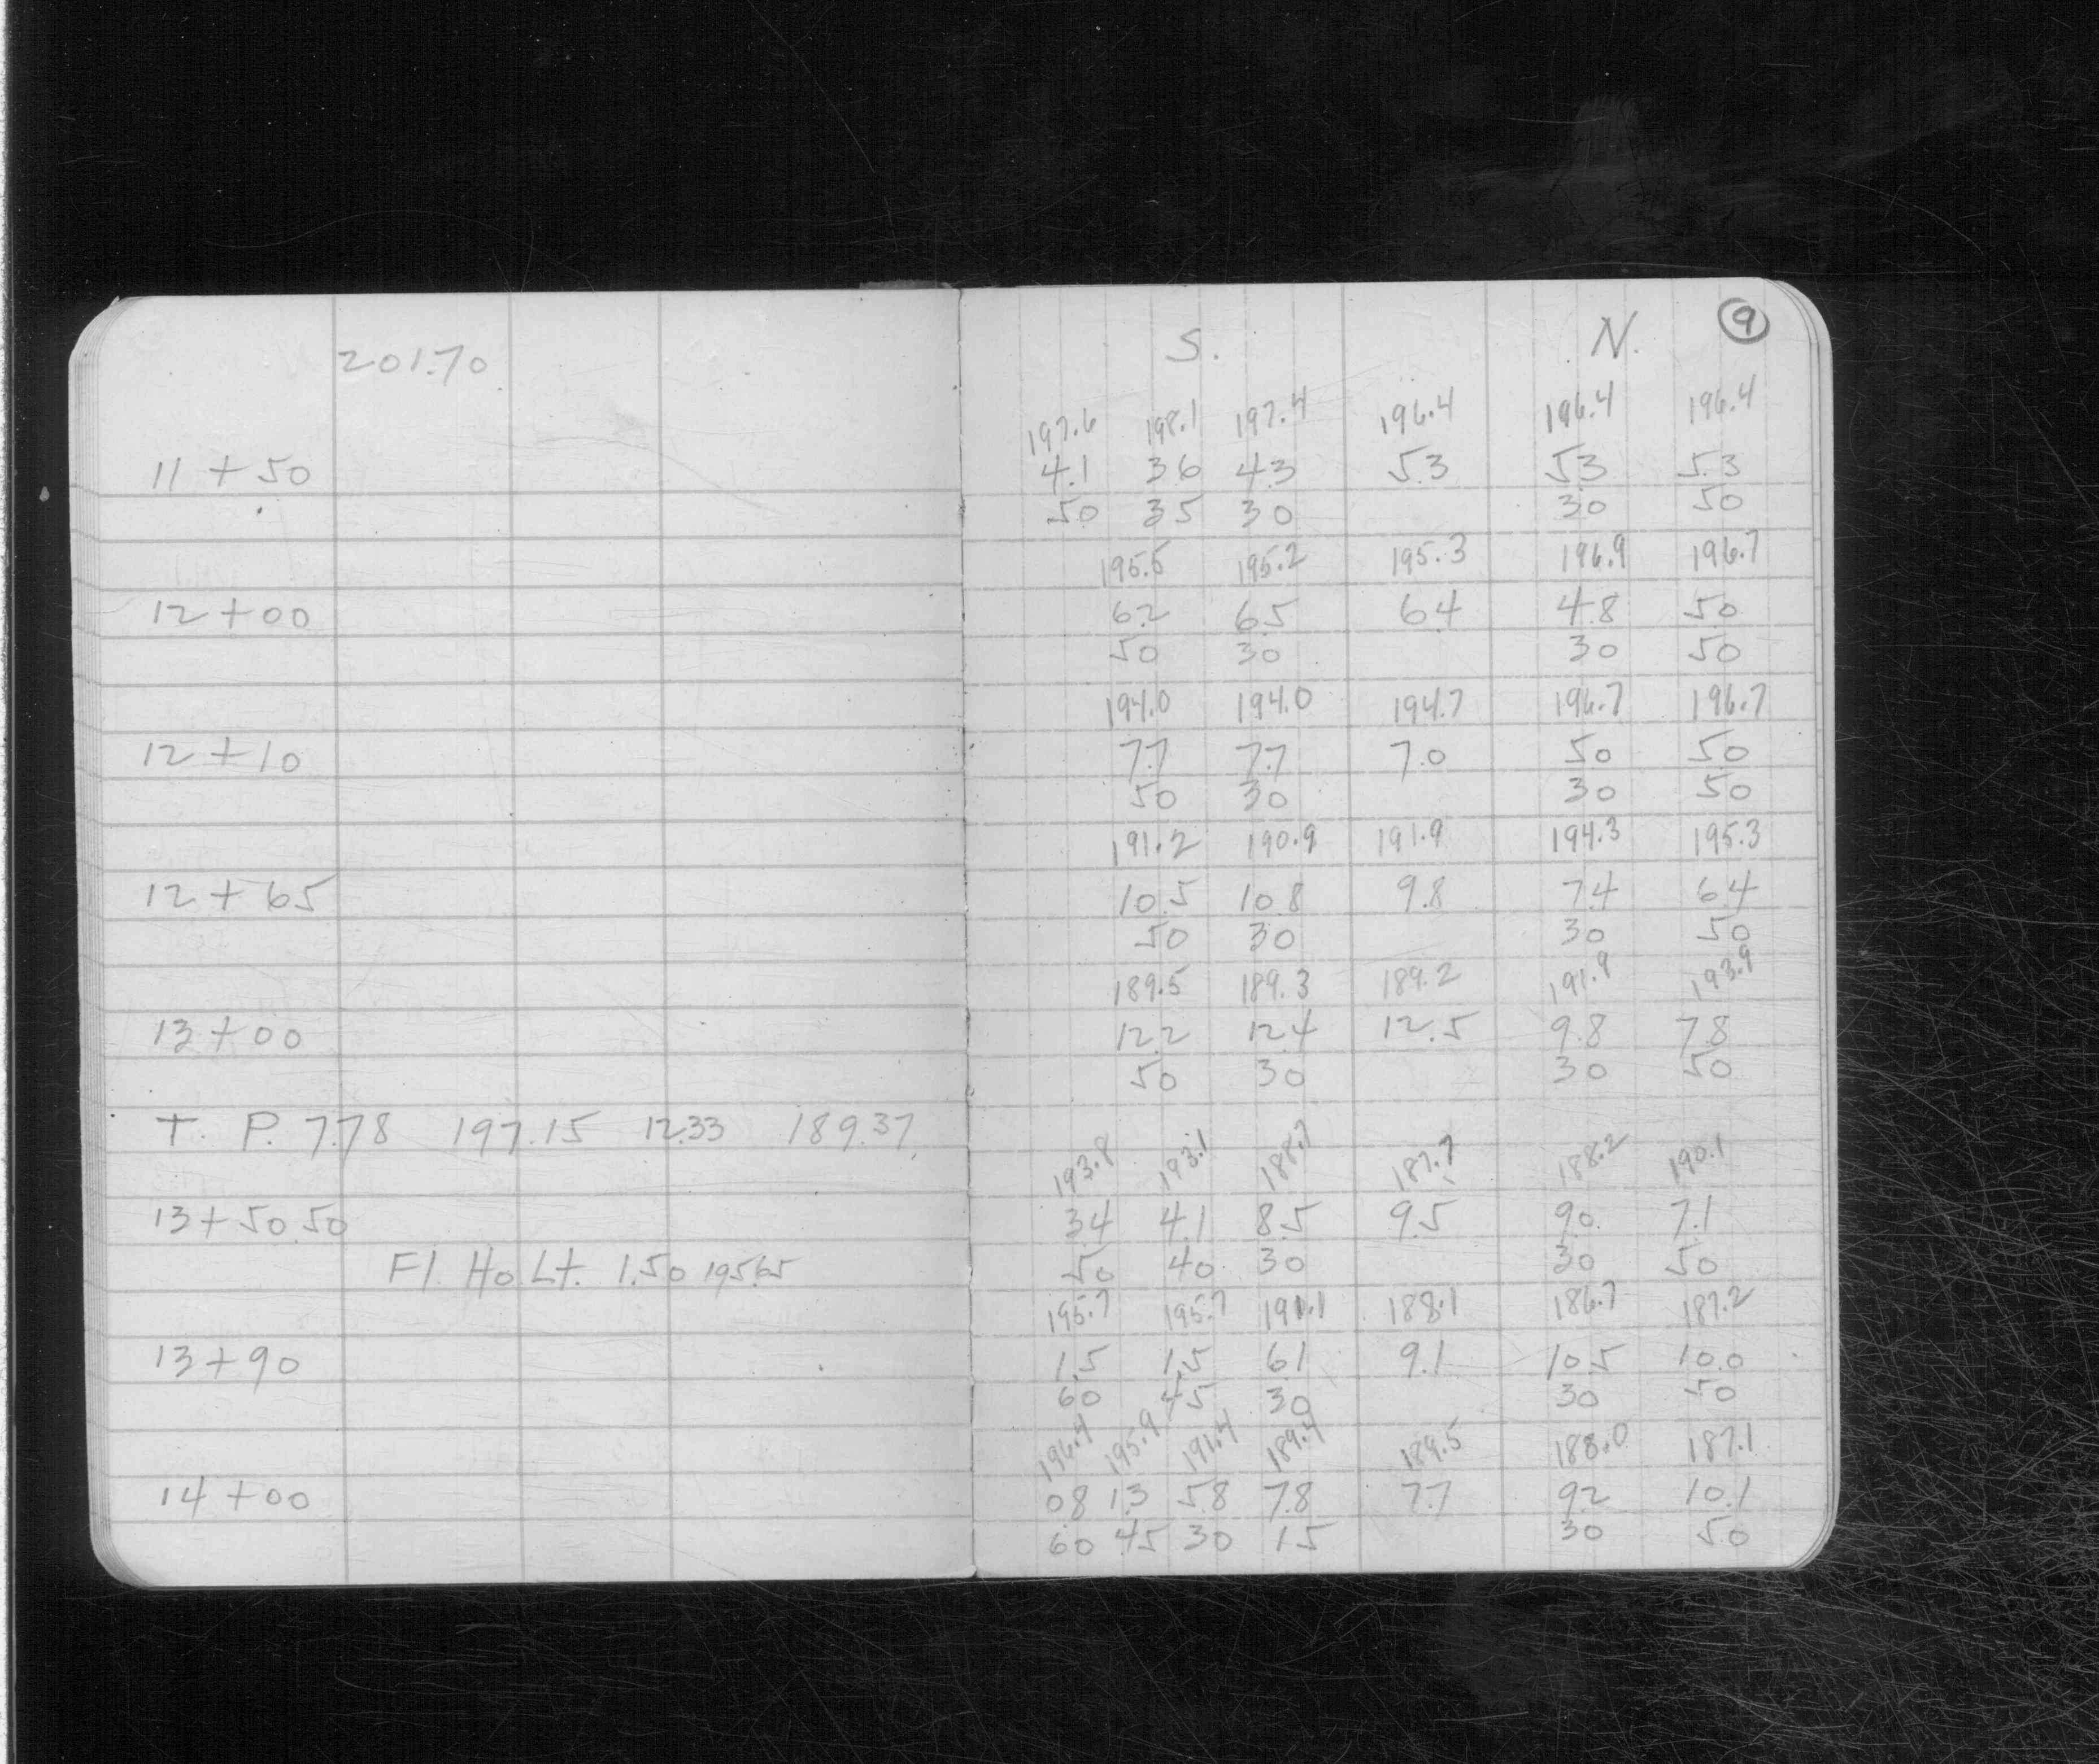 201.70
11 + 50
12 + 00
12 + 10
12 + 65
13 + 00
T. P. 7.78 197.15 12.33 189.37
13 + 50.50
Fl. Ho. Lt. 1.50 195.65
13 + 90
14 + 00
9
S. N.
197.6 198.1 197.4 196.4 196.4 196.4
4.1 3.6 4.3 5.3 5.3 5.3
50 35 30 30 50
195.5 195.2 195.3 196.9 196.7
6.2 6.5 6.4 4.8 5.0
50 30 30 50
194.0 194.0 194.7 196.7 196.7
7.7 7.7 7.0 5.0 5.0
50 30 30 50
191.2 190.9 191.9 194.3 195.3
10.5 10.8 9.8 7.4 6.4
50 30 30 50
189.5 189.3 189.2 191.9 193.9
12.2 12.4 12.5 9.8 7.8
50 30 30 50
193.8 193.1 188.7 187.7 188.2 190.1
3.4 4.1 8.5 9.5 9.0 7.1
50 40 30 30 50
195.7 195.7 191.1 188.1 186.7 187.2
1.5 1.5 6.1 9.1 10.5 10.0
60 45 30 30 50
196.4 195.9 191.4 189.4 189.5 188.0 187.1
0.8 1.3 5.8 7.8 7.7 9.2 10.1
60 45 30 15 30 50